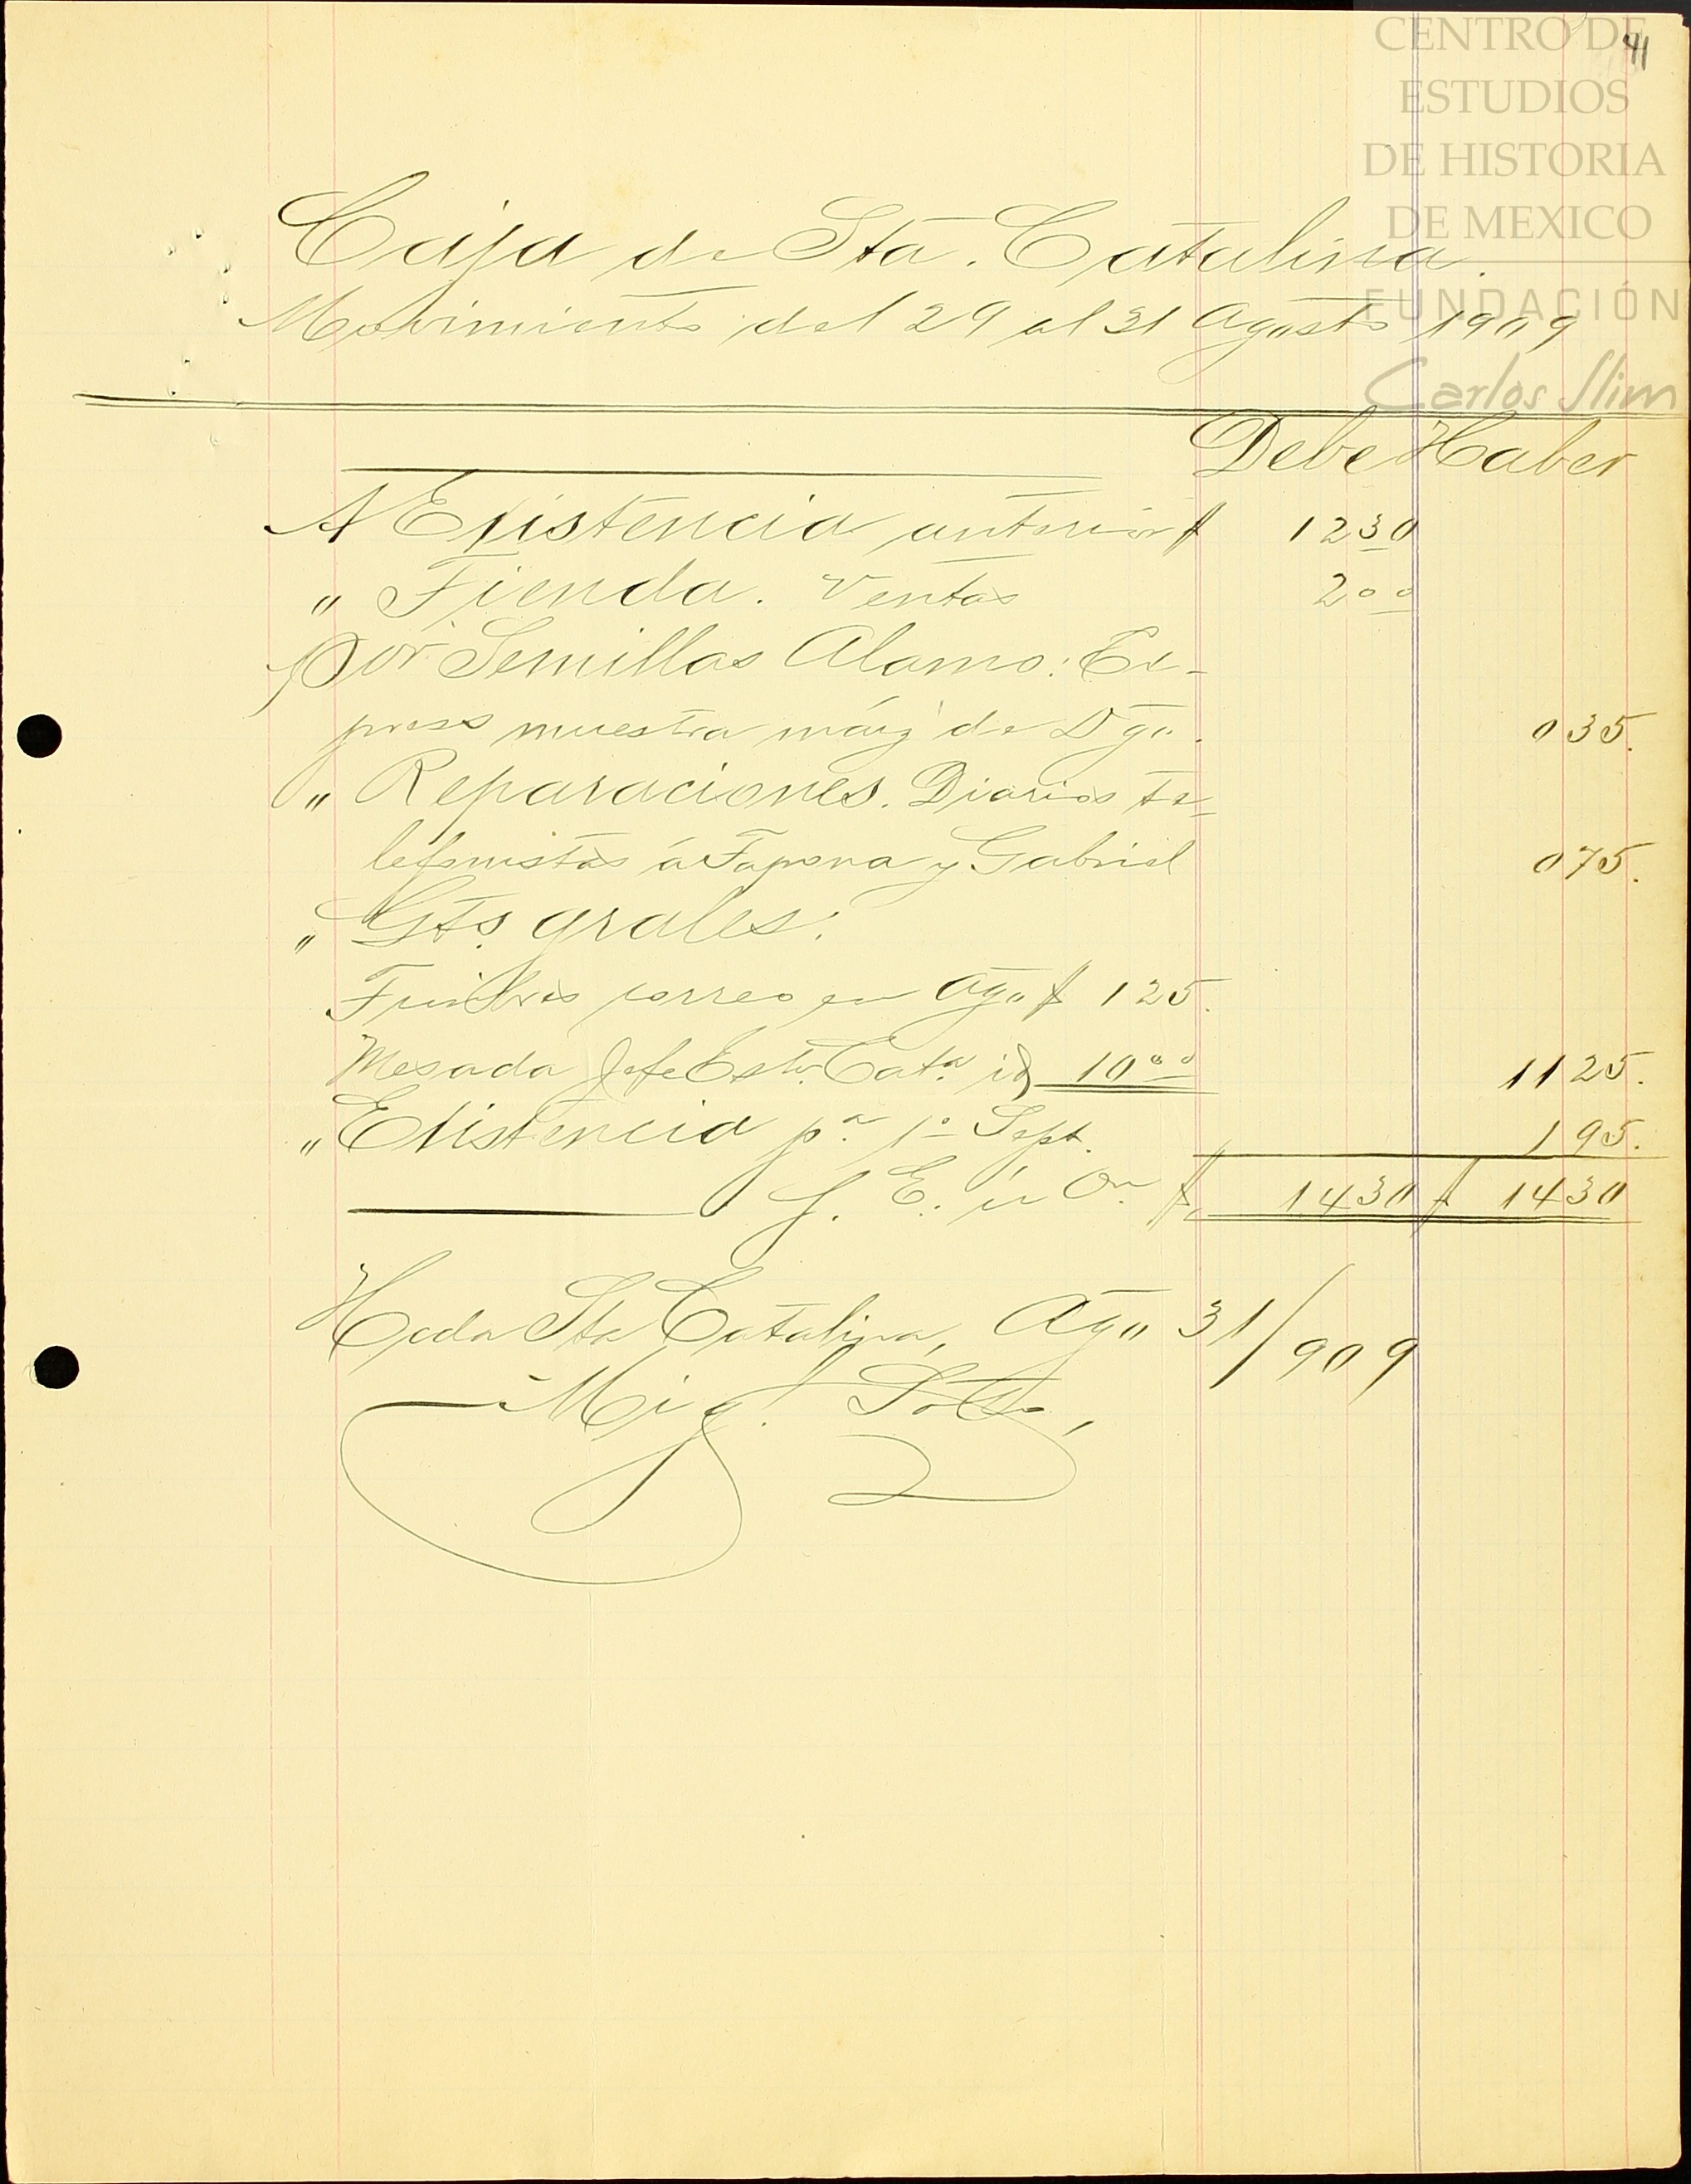 CENTRO DE
ESTUDIOS
DE HISTORIA
DE MEXICO
FUNDACIÓN
Carlos Slim
41
Caja de Sta. Catalina.
Movimiento del 29 al 31 Agosto 1909
Debe Haber
A Existencia anterior $ 1230
" Tienda. Ventas 200
por Semillas Alamo: Ex-
press muestra maíz de Dgo. 035.
" Reparaciones. Diarios te-
lefonistas á Tapona y Gabriel 075.
" Gts. grales:
Timbres correo en Ago $ 125.
Mesada Jefe Estn. Cata. id 1000 1125.
" Existencia pa. 1o Sept. 195.
S. E. ú On. $ 1430 $ 1430
Hcda Sta Catalina, Ago 31/909
Migl.